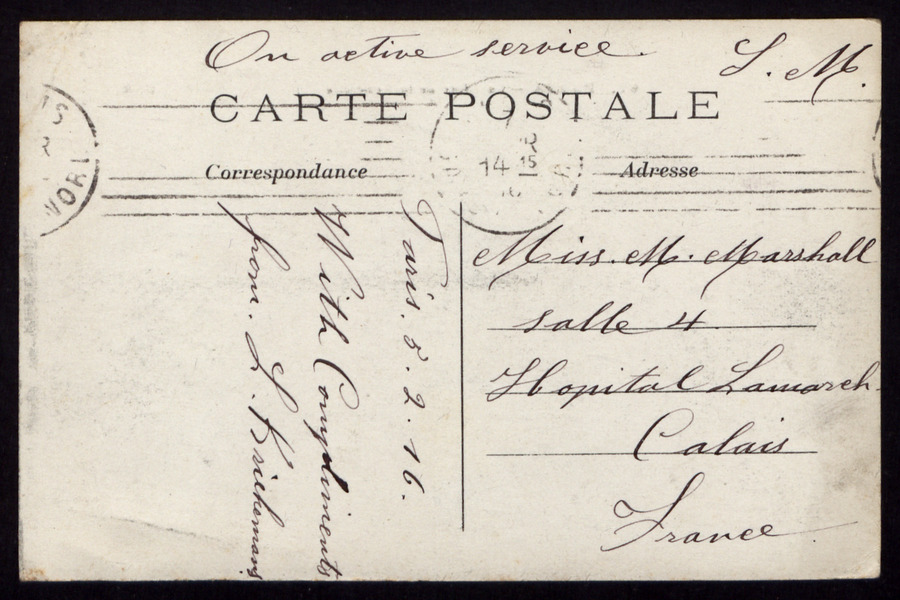 On active service.
S. M.
CARTE POSTALE
Correspondance
Adresse
14 15
Paris. 5. 2. 16.
With Compliments
from. L.
Miss. M. Marshall
Salle 4
Hopital Lamarch
Calais
France